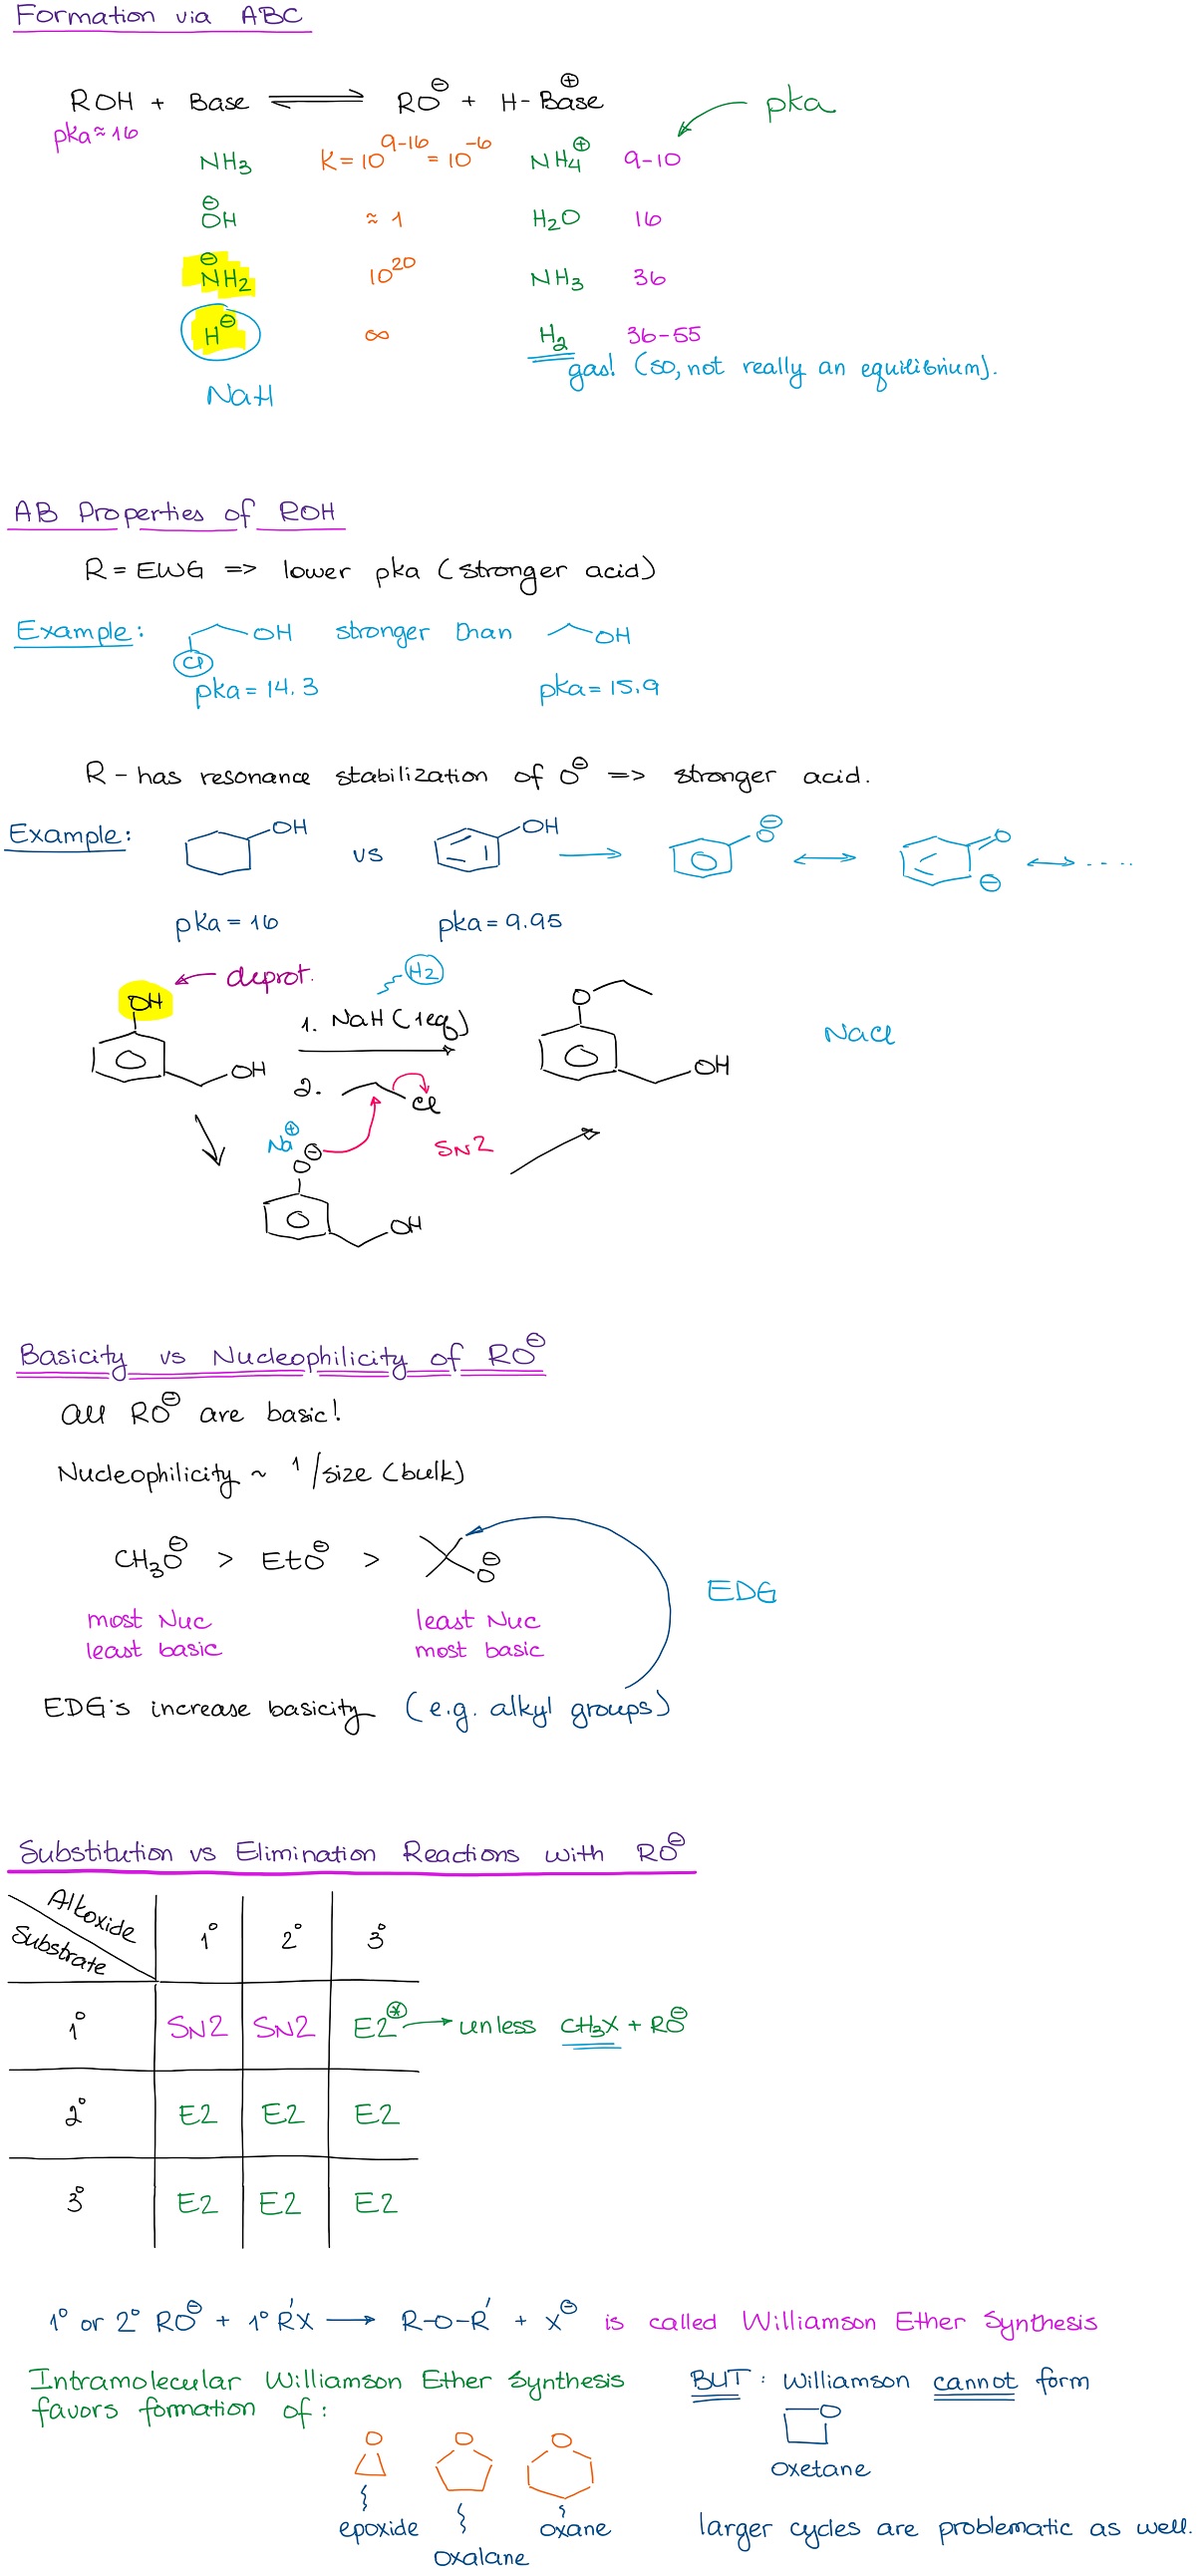 Formation via ABC
ROH + Base ⇌ RO⊖ + H-Base⊕
pka
pka≈16
NH3 K=10^9-16 = 10^-6 NH4⊕ 9-10
⊖OH ≈ 1 H2O 16
⊖NH2 10^20 NH3 36
H⊖ ∞ H2 36-55
gas! (so, not really an equilibrium).
NaH
AB Properties of ROH
R = EWG => lower pka (stronger acid)
Example: Cl OH stronger than OH
pka=14.3 pka=15.9
R - has resonance stabilization of O⊖ => stronger acid.
Example: OH vs OH → O⊖ ↔ O ⊖ ↔ .....
pka=16 pka=9.95
OH ← deprot. H2
1. NaH (1eq) O
OH OH NaCl
2. Cl
Na⊕ O⊖ SN2
OH
Basicity vs Nucleophilicity of RO⊖
all RO⊖ are basic!
Nucleophilicity ~ 1/size (bulk)
CH3O⊖ > EtO⊖ > O⊖
EDG
most Nuc least Nuc
least basic most basic
EDG's increase basicity (e.g. alkyl groups)
Substitution vs Elimination Reactions with RO⊖
Alkoxide
Substrate 1° 2° 3°
1° SN2 SN2 E2⊛ → unless CH3X + RO⊖
2° E2 E2 E2
3° E2 E2 E2
1° or 2° RO⊖ + 1° R'X → R-O-R' + X⊖ is called Williamson Ether Synthesis
Intramolecular Williamson Ether Synthesis
favors formation of:
O O O
epoxide oxalane oxane
BUT: Williamson cannot form
O
oxetane
larger cycles are problematic as well.